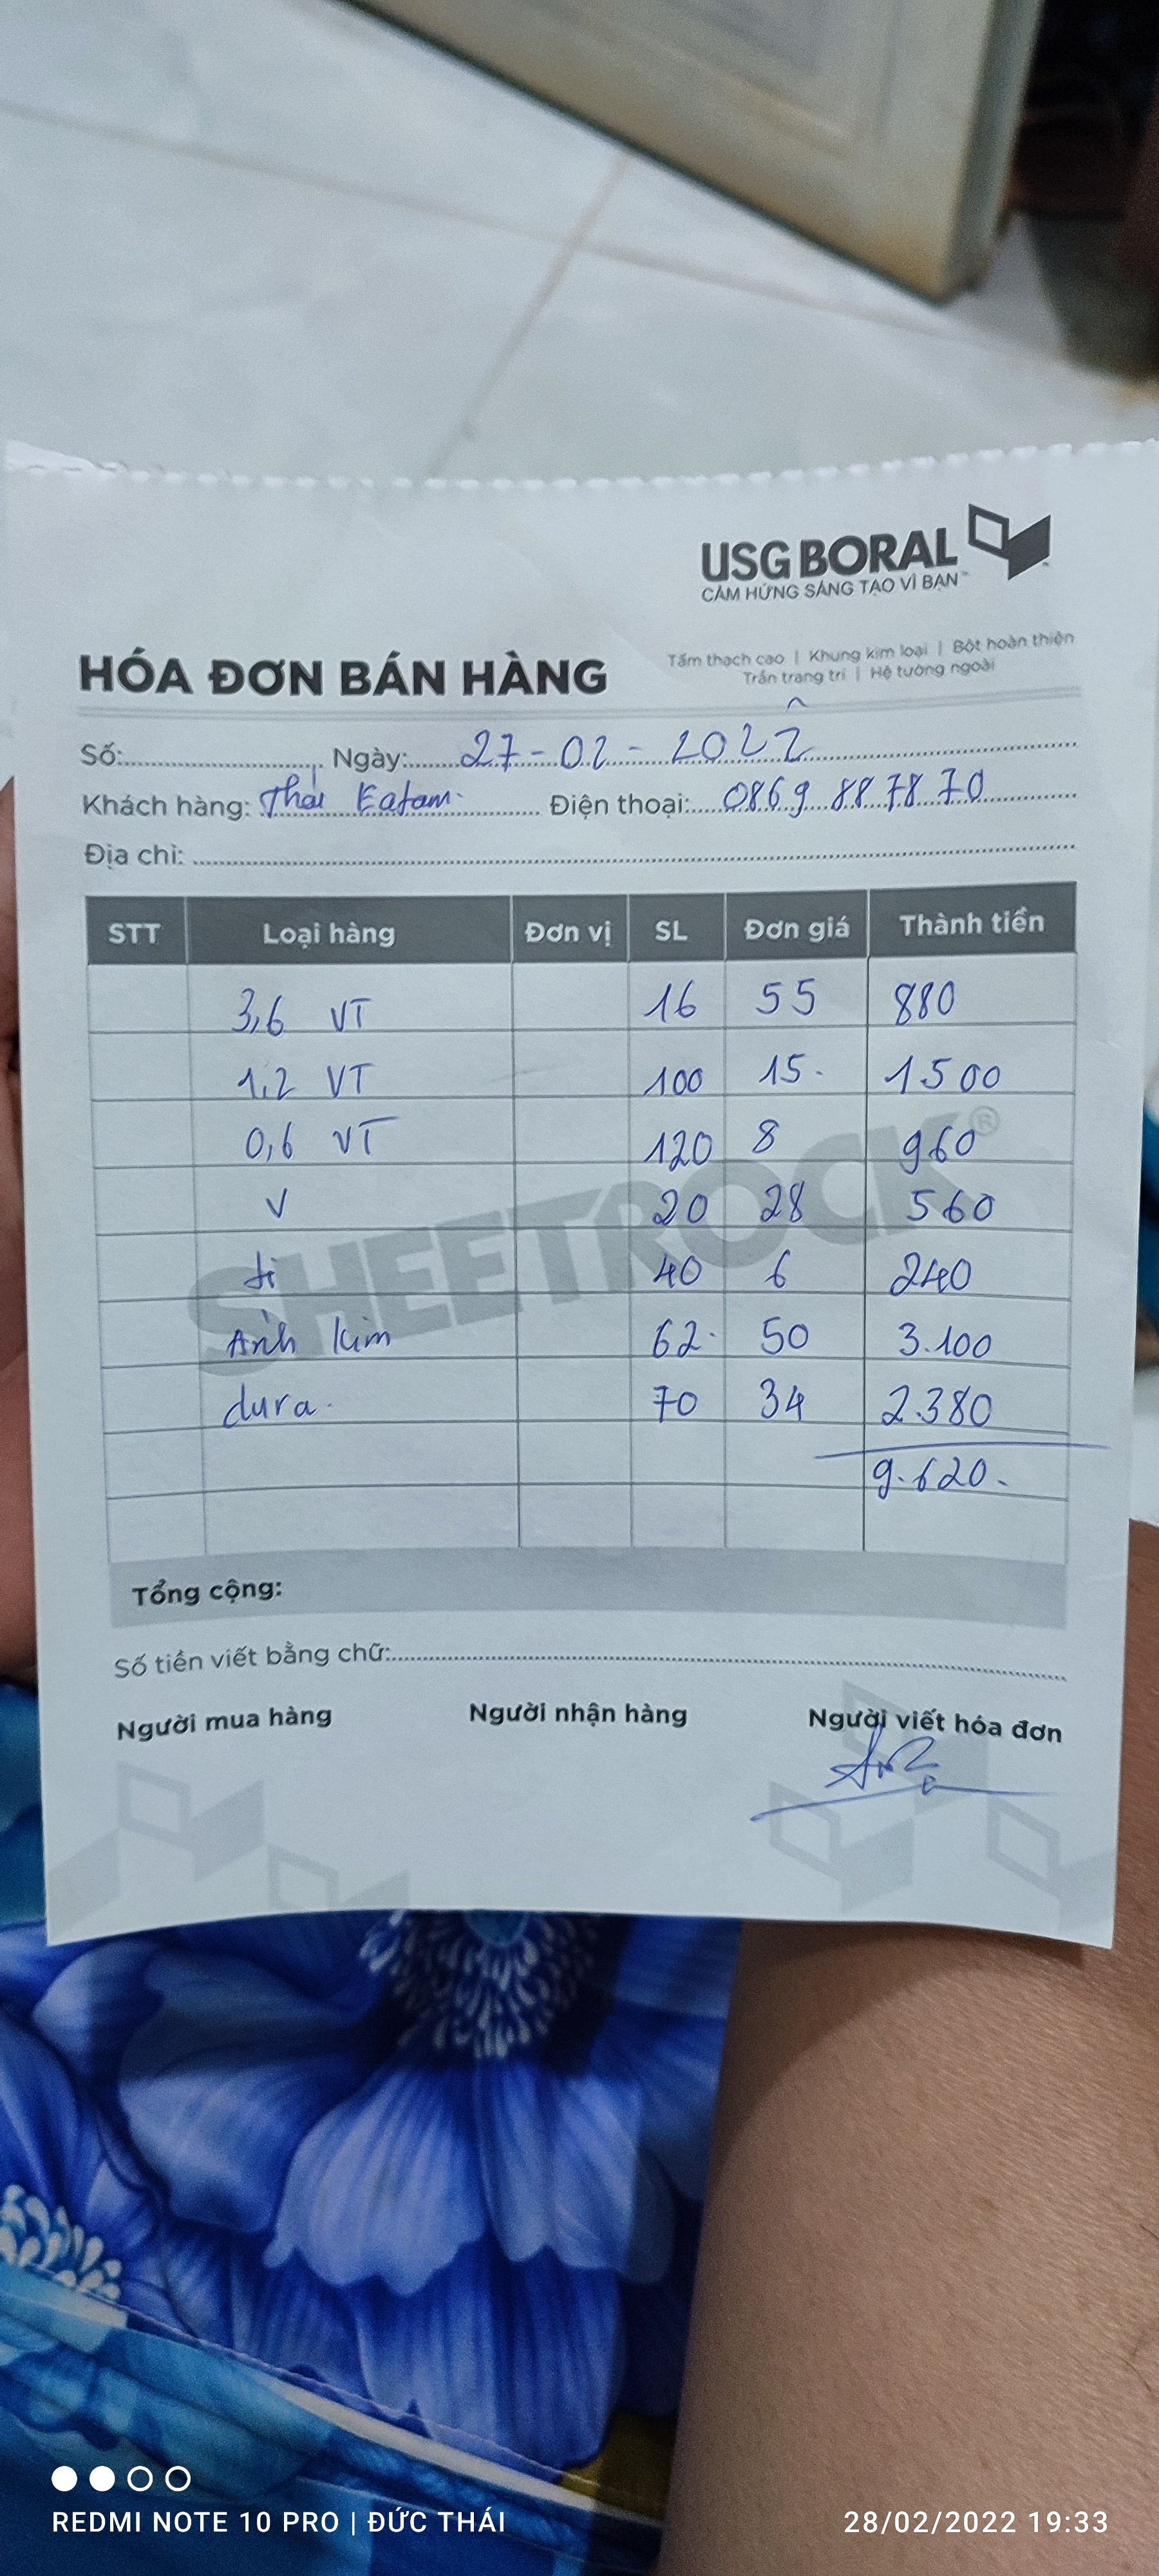 USG BORAL
CẢM HỨNG SÁNG TẠO VÌ BẠN™
HÓA ĐƠN BÁN HÀNG
Tấm thạch cao | Khung kim loại | Bột hoàn thiện
Trần trang trí | Hệ tường ngoài
Số: Ngày: 27-02-2022
Khách hàng: Thái Eatam Điện thoại: 0869 887870
Địa chỉ:
STT Loại hàng Đơn vị SL Đơn giá Thành tiền
3,6 VT 16 55 880
1.2 VT 100 15. 1500
0,6 VT 120 8 960
V 20 28 560
ti 40 6 240
Ánh kim 62. 50 3.100
dura. 70 34 2.380
9.620.
SHEETROCK®
Tổng cộng:
Số tiền viết bằng chữ:
Người mua hàng Người nhận hàng Người viết hóa đơn
REDMI NOTE 10 PRO | ĐỨC THÁI 28/02/2022 19:33